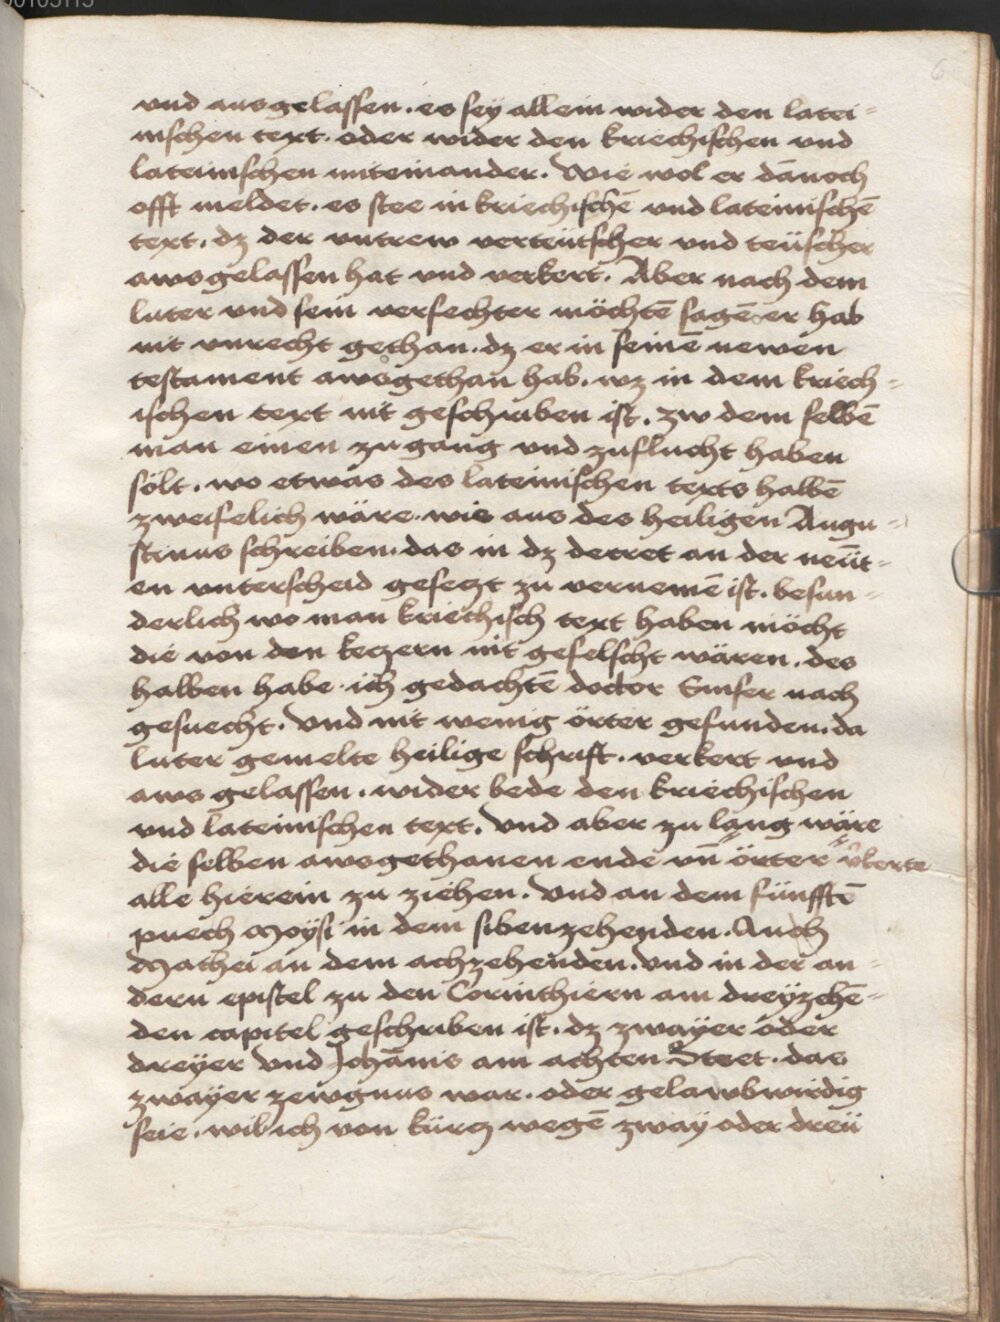 00105115
6
vnd ausgelassen. es sey allein wider den latei=
nischen text. oder wider den kriechischen vnd
lateinischen miteinander. Wie wol er dānoch
offt meldet. es stee in kriechischē vnd lateinischē
text. dz der vntrew verteütscher vnd teüscher
awsgelassen hat vnd verkert. Aber nach dem
luter vnd sein verfechter möchtē sagē er hab
nit vnrecht gethan. dz er in seinē newen
testament awsgethan hab. wz in dem kriech=
ischen text nit geschriben ist. zw dem selbē
man einen zugang vnd zuflucht haben
sölt. wo etwas des lateinischen texts halbē
zweifelich wäre. wie aus des heiligen Augu=
stinus schreiben. das in dz decret an der neüt=
en vnterscheid gesetzt zu vernemē ist. besun=
derlich wo man kriechisch text haben möcht
die von den ketzern nit gefelscht wären. des
halben habe ich gedachtē doctor Emser nach
gesuecht. Vnd nit wenig örter gefunden. da
luter gemelte heilige schrift. verkert vnd
aws gelassen. wider bede den kriechischen
vnd lateinischen text. Vnd aber zu lang wäre
die selben awsgethanen ende vn̄ örter
alle hierein zu ziehen. Vnd an dem fünfftē
puech Moysi in dem sibenzehenden. Auch
Mathei an dem achzehenden. Vnd in der an=
dern epistel zu den Corinthiern am dreyzehē=
den capitel geschriben ist. dz zwayer oder
dreyer Vnd Johānis am achten Steet. das
zwayer zewgnus war. oder gelawbwirdig
seie. wil ich von kürtz wegē zway oder dreü